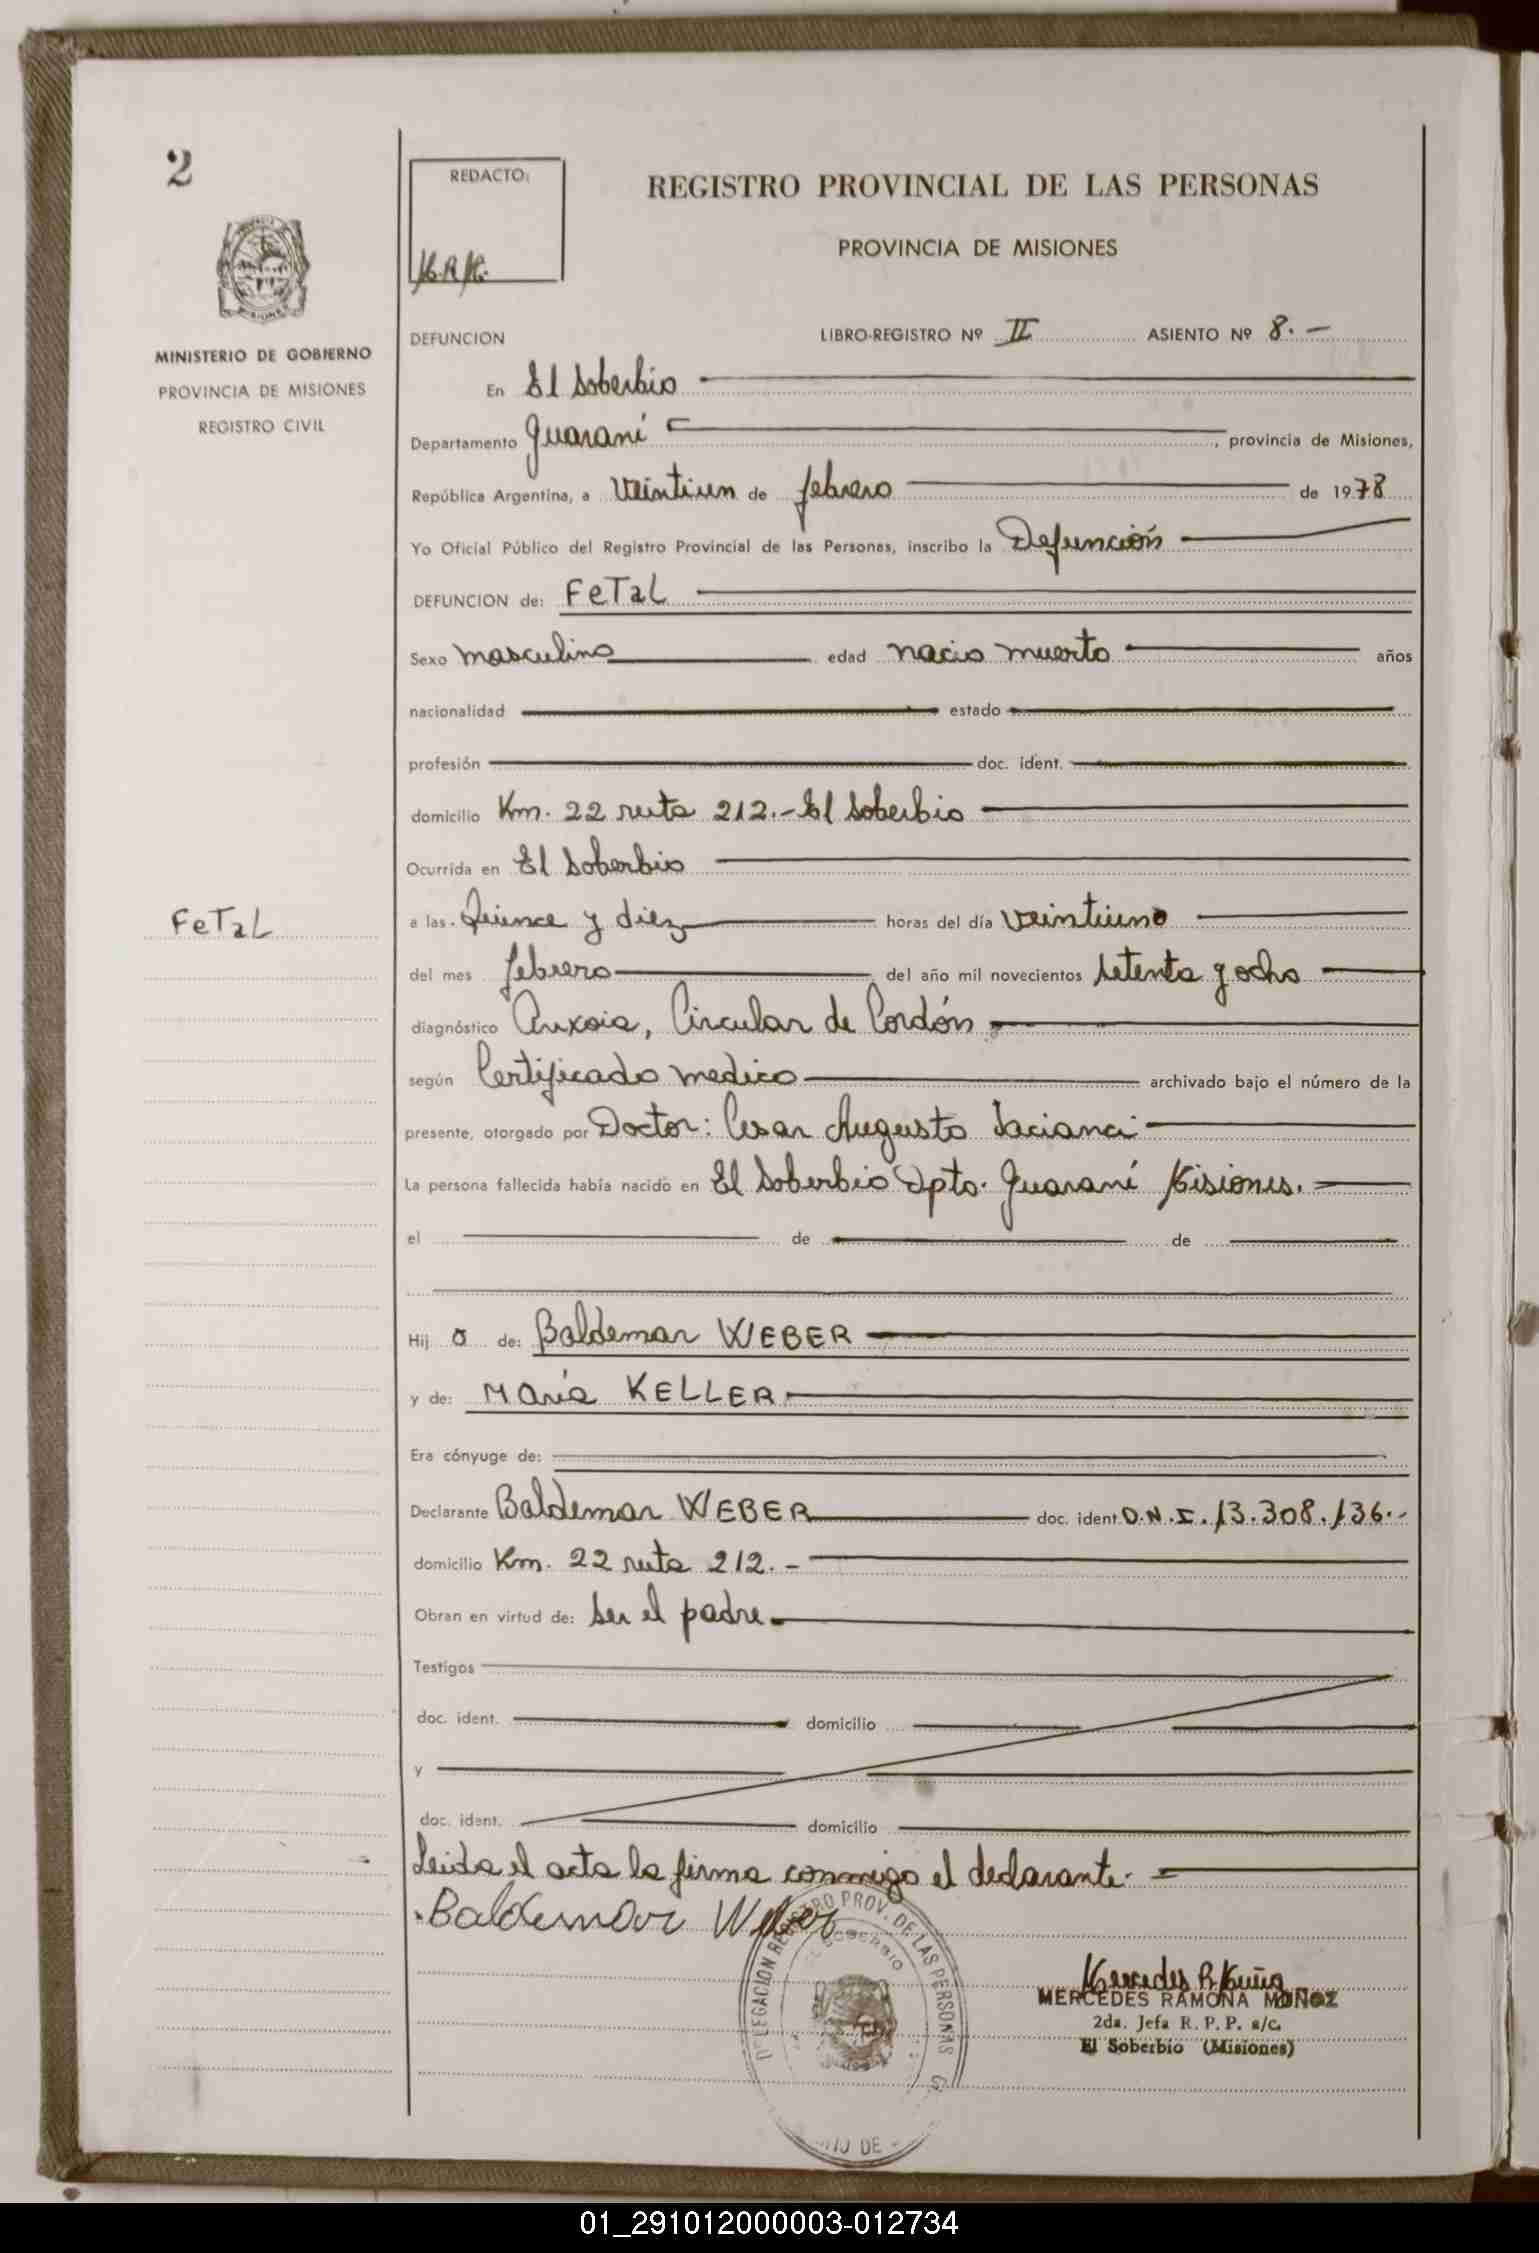 2
MINISTERIO DE GOBIERNO
PROVINCIA DE MISIONES
REGISTRO CIVIL
REDACTO:
REGISTRO PROVINCIAL DE LAS PERSONAS
PROVINCIA DE MISIONES
DEFUNCION LIBRO-REGISTRO Nº II ASIENTO Nº 8.-
En El Soberbio
Departamento Guaraní, provincia de Misiones,
República Argentina, a veintiun de febrero de 1978
Yo Oficial Público del Registro Provincial de las Personas, inscribo la Defunción
DEFUNCION de: FeTaL
Sexo masculino edad nacio muerto años
nacionalidad estado
profesión doc. ident.
domicilio Km. 22 ruta 212.- El Soberbio
Ocurrida en El Soberbio
FeTaL
a las Quince y diez horas del día veintiuno
del mes febrero del año mil novecientos setenta y ocho
diagnóstico Anxoia, Circular de Cordón
según Certificado medico archivado bajo el número de la
presente, otorgado por Doctor: Cesar Augusto
La persona fallecida había nacido en El Soberbio Dpto. Guaraní Misiones.
el de de
Hij o de: Baldemar WEBER
y de: María KELLER
Era cónyuge de:
Declarante Baldemar WEBER doc. ident D.N.I. 13.308.136.-
domicilio Km. 22 ruta 212.-
Obran en virtud de: ser el padre
Testigos
doc. ident. domicilio
y
doc. ident. domicilio
Leida el acta la firma conmigo el declarante.
Baldemar Weber
DELEGACION REGISTRO PROV. DE LAS PERSONAS
SOBERBIO
Mercedes R. Muñoz
MERCEDES RAMONA MUÑOZ
2da. Jefa R. P. P. a/c.
El Soberbio (Misiones)
01_291012000003-012734